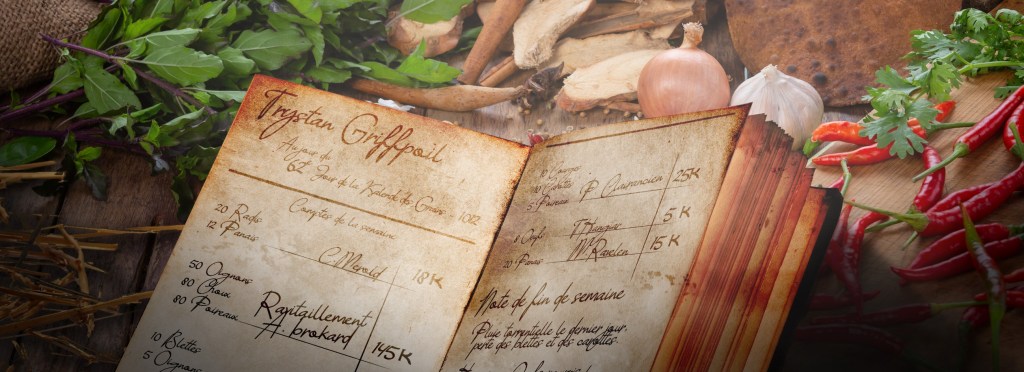 Trystan Griffpoil
Au jour du
62 Jour de la Kalende du Grain 1082
Comptes de la semaine
20 Radis
12 Panais
C. Merald 18 K
50 Oignons
80 Choux
80 Poireaux
Ravitaillement
A. brokard
145 K
10 Blettes
5 Oignons
5 Poireaux
P. Clairencien 25 K
T. Hungar 5 K
20 Panais
M. Ravelen 15 K
Note de fin de semaine
Pluie torrentielle le dernier jour
perte des blettes et des carottes.